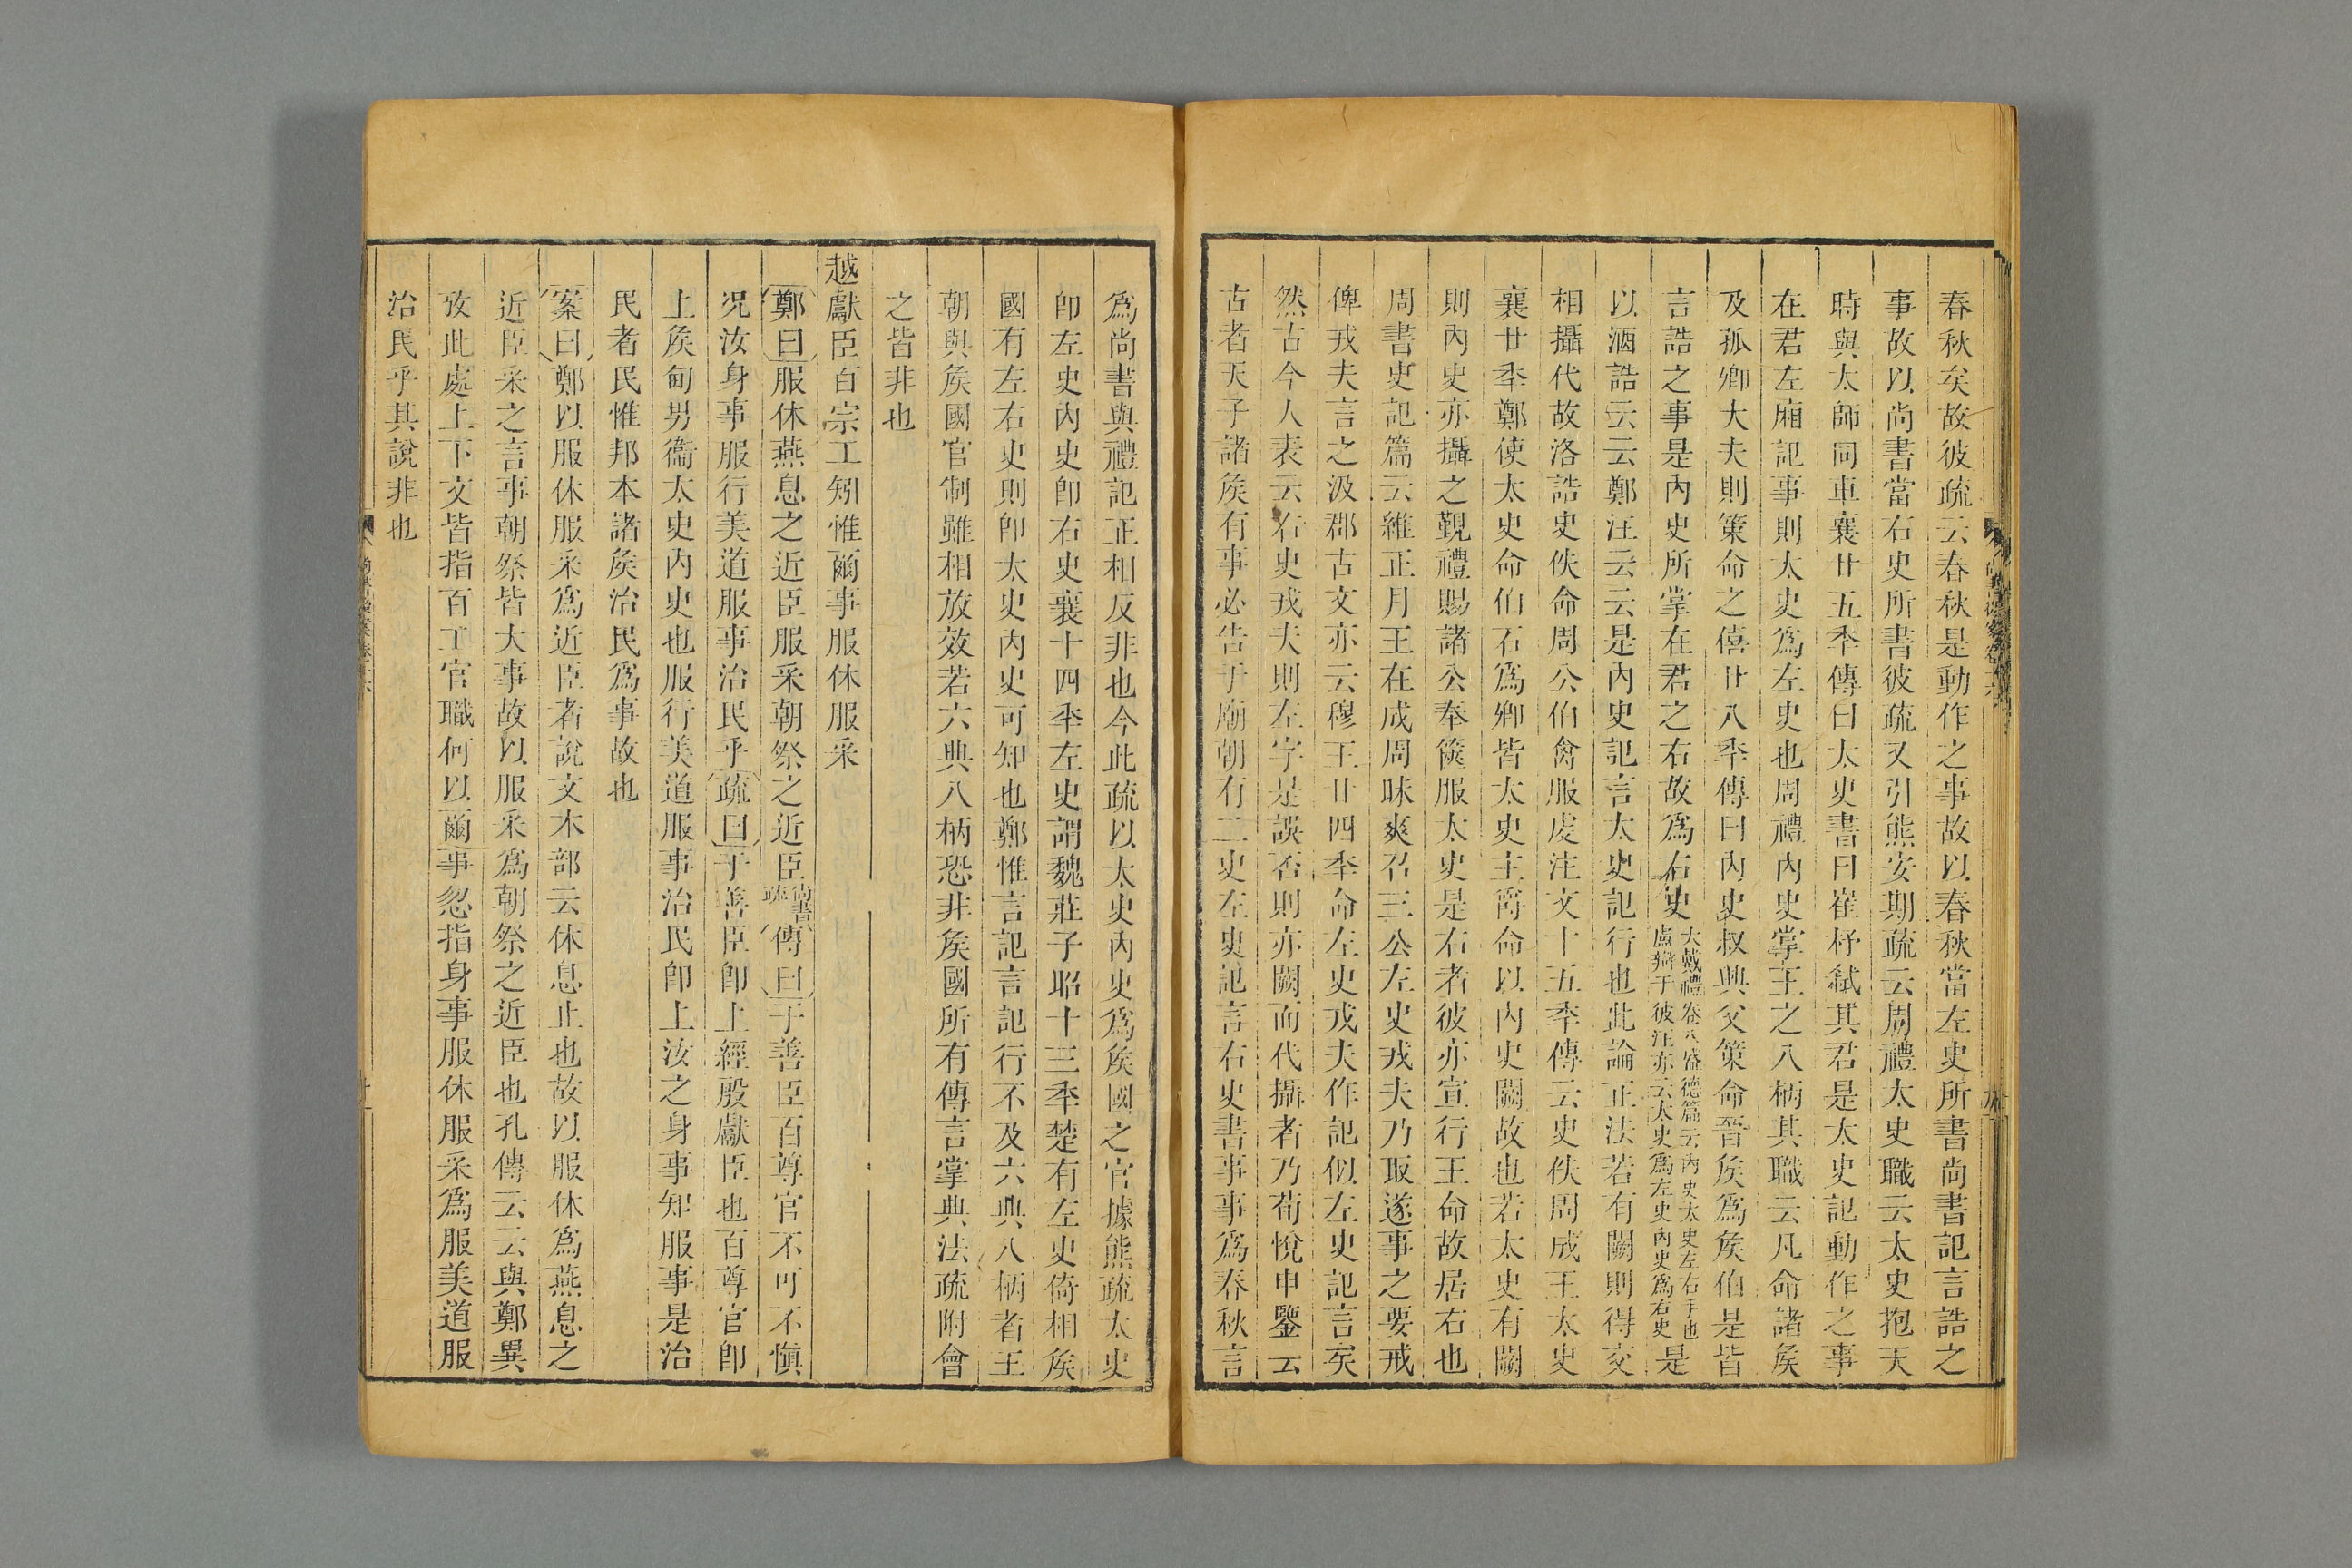 春秋矣故彼疏云春秋是動作之事故以春秋當左史所書尚書記言誥之
事故以尚書當右史所書彼疏又引熊安期疏云周禮太史職云太史抱天
時與太師同車襄廿五秊傳曰太史書曰崔杼弑其君是太史記動作之事
在君左廂記事則太史爲左史也周禮內史掌王之八柄其職云凡命諸矦
及孤卿大夫則策命之僖廿八秊傳曰內史叔興父策命晉矦爲矦伯是皆
言誥之事是內史所掌在君之右故爲右史大戴禮卷八盛德篇云內史太史左右手也盧辯于彼注亦云太史爲左史內史爲右史是
以酒誥云云鄭注云云是內史記言太史記行也此論正法若有闕則得交
相攝代故洛誥史佚命周公伯禽服虔注文十五秊傳云史佚周成王太史
襄廿秊鄭使太史命伯石爲卿皆太史主爵命以內史闕故也若太史有闕
則內史亦攝之覲禮賜諸公奉篋服太史是右者彼亦宣行王命故居右也
周書史記篇云維正月王在成周昧爽召三公左史戎夫乃取遂事之要戒
俾戎夫言之汲郡古文亦云穆王廿四秊命左史戎夫作記似左史記言矣
然古今人表云右史戎夫則左字是誤否則亦闕而代攝者乃荀悅申鑒云
古者天子諸矦有事必告于廟朝有二史左史記言右史書事事爲春秋言
爲尚書與禮記正相反非也今此疏以太史內史爲矦國之官據熊疏太史
卽左史內史卽右史襄十四秊左史謂魏莊子昭十三秊楚有左史倚相矦
國有左右史則卽太史內史可知也鄭惟言記言記行不及六典八柄者王
朝與矦國官制雖相放效若六典八柄恐非矦國所有傳言掌典法疏附會
之皆非也
越獻臣百宗工矧惟爾事服休服采
鄭曰服休燕息之近臣服采朝祭之近臣尚書疏傳曰于善臣百尊官不可不愼
況汝身事服行美道服事治民乎疏曰于善臣卽上經殷獻臣也百尊官卽
上矦甸男衞太史內史也服行美道服事治民卽上汝之身事知服事是治
民者民惟邦本諸矦治民爲事故也
案曰鄭以服休服采爲近臣者說文木部云休息止也故以服休爲燕息之
近臣采之言事朝祭皆大事故以服采爲朝祭之近臣也孔傳云云與鄭異
攷此處上下文皆指百工官職何以爾事忽指身事服休服采爲服美道服
治民乎其說非也